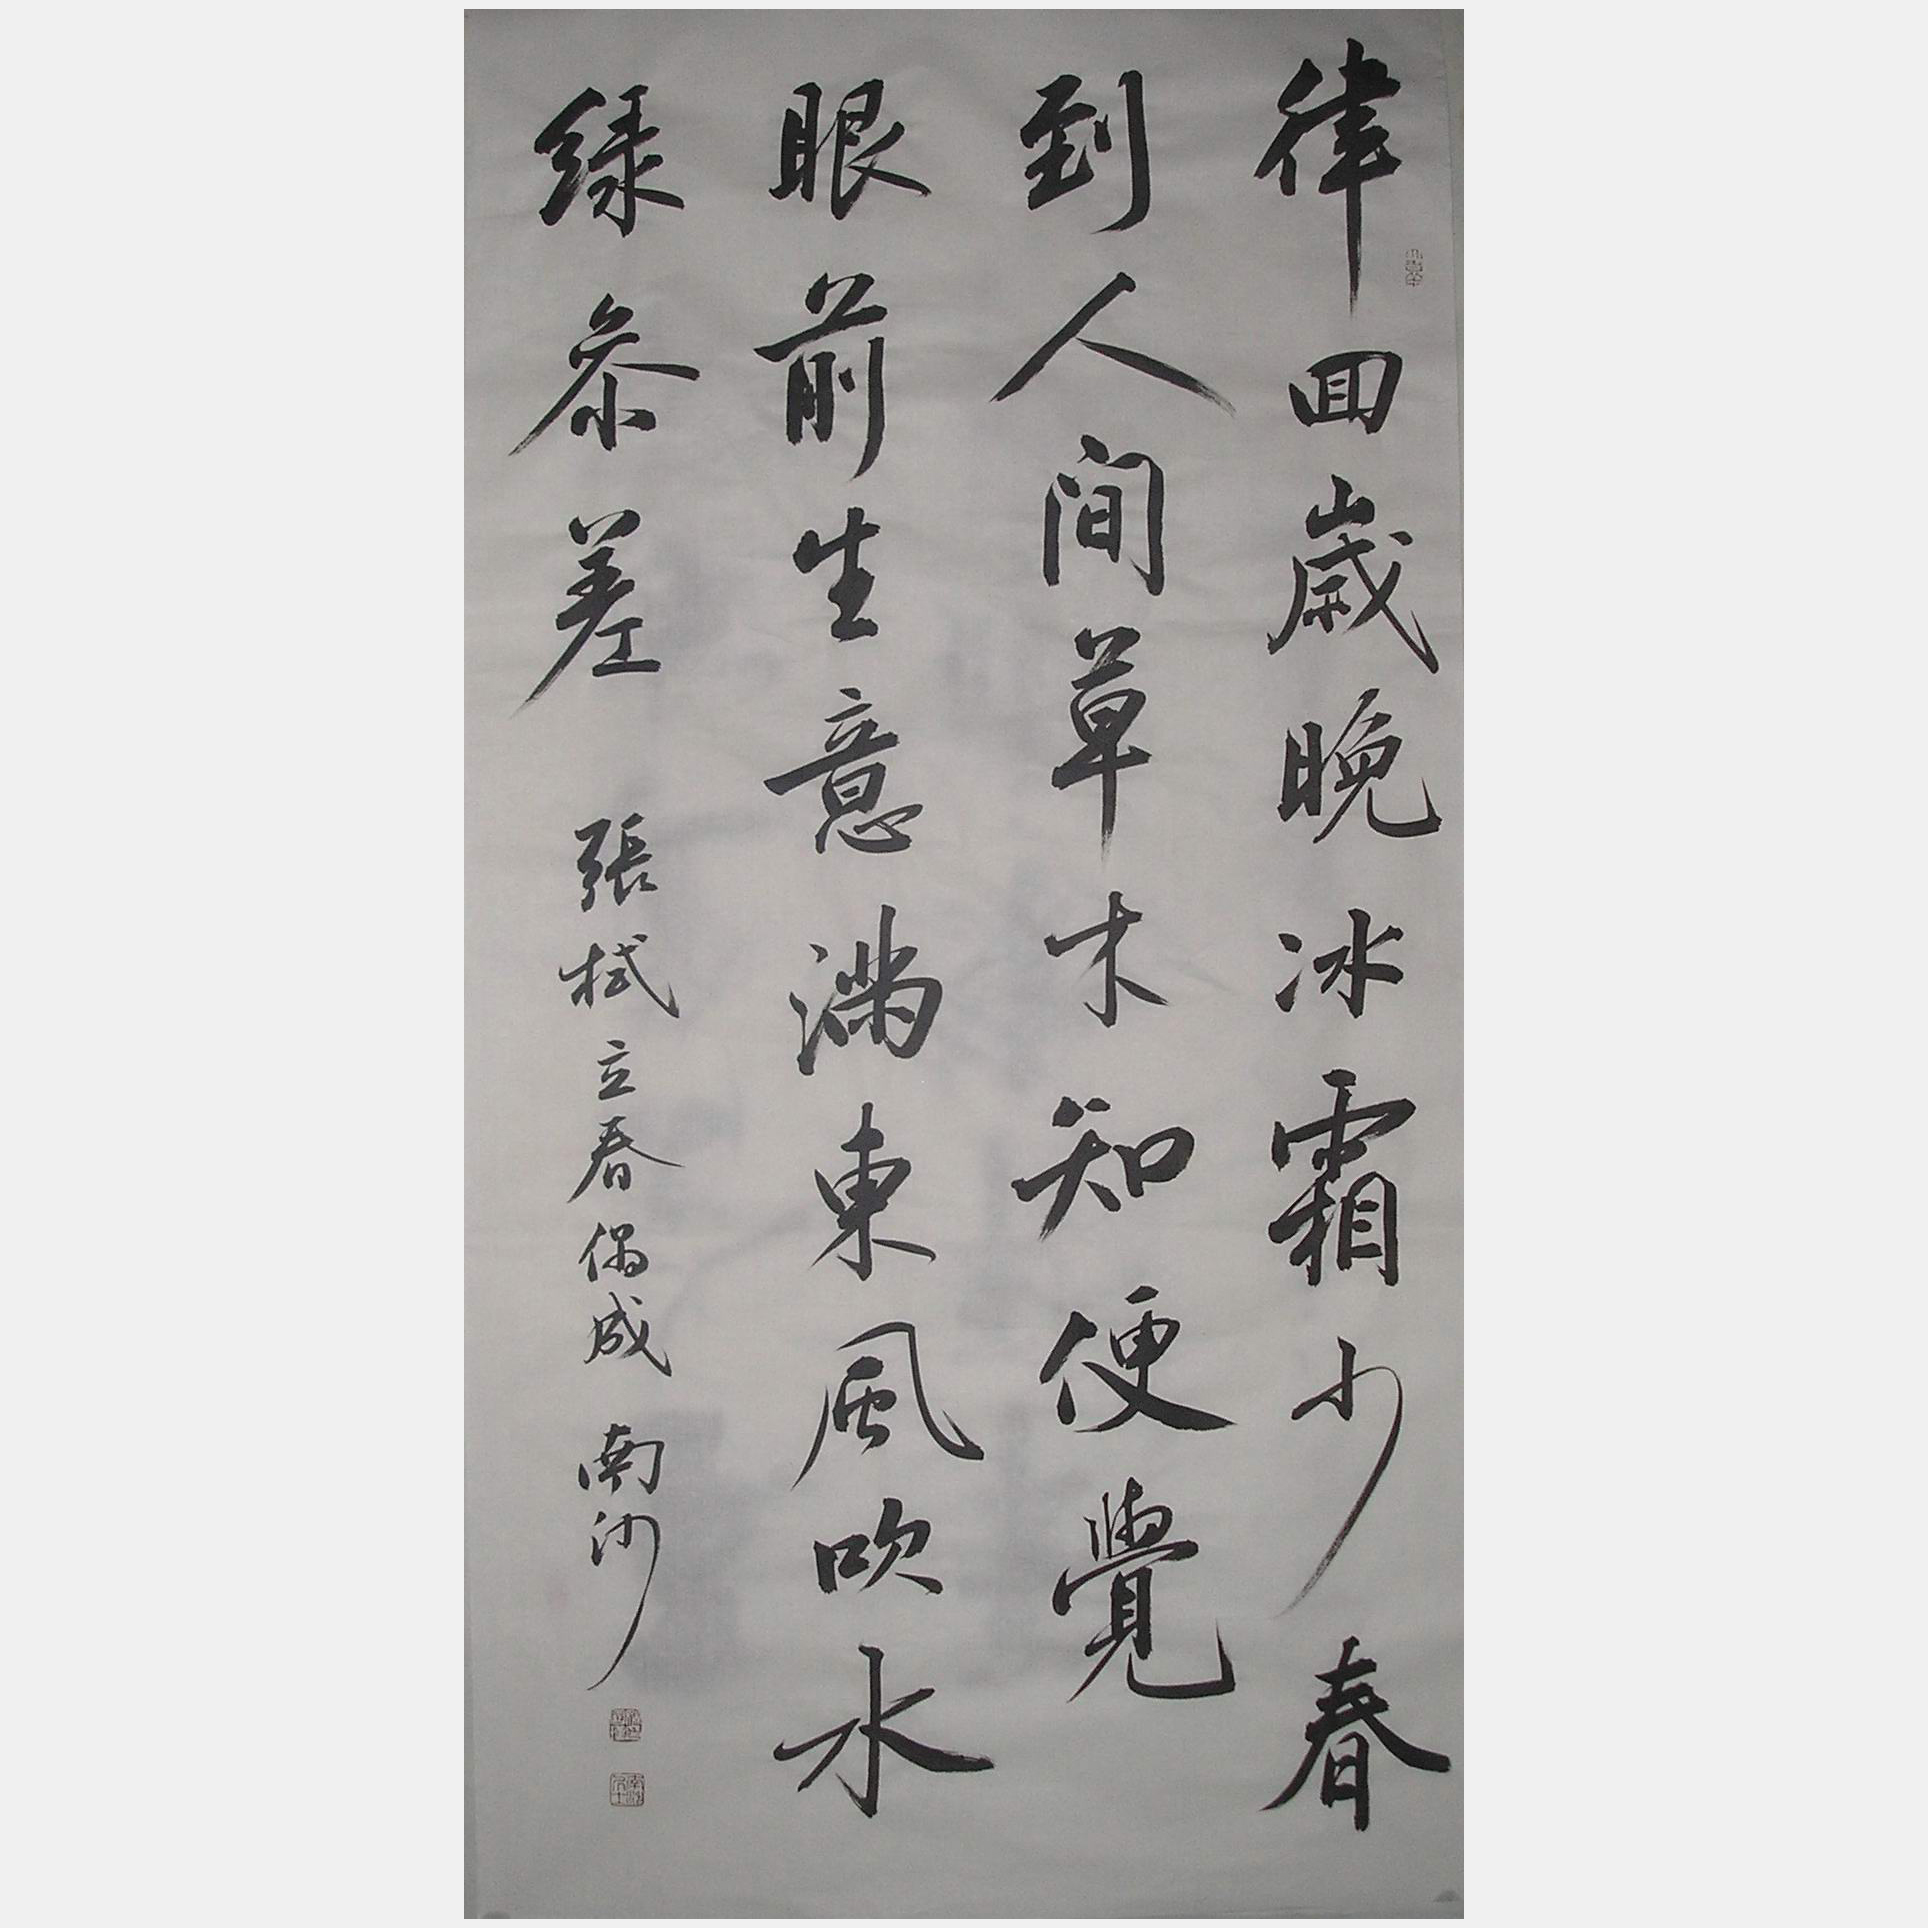 律回歲晚冰霜少春
到人間草木知便覺
眼前生意滿東風吹水
綠參差 張栻立春偶成 南沙